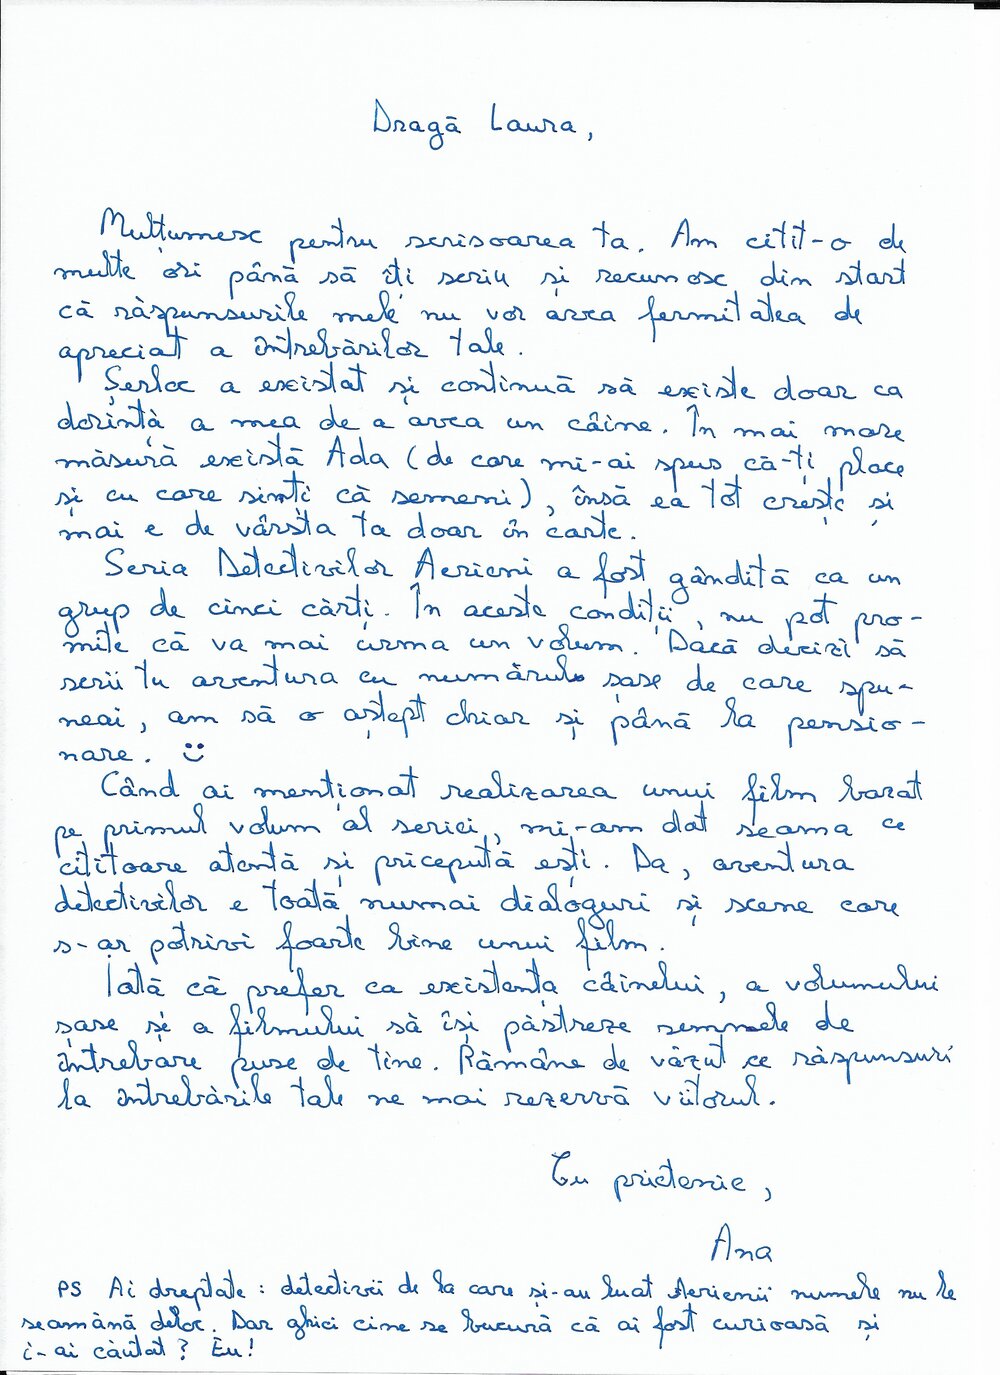 Dragă Laura,
Mulțumesc pentru scrisoarea ta. Am citit-o de
multe ori până să îți scriu și recunosc din start
că răspunsurile mele nu vor avea fermitatea de
apreciat a întrebărilor tale.
Șerloc a existat și continuă să existe doar ca
dorință a mea de a avea un câine. În mai mare
măsură există Ada (de care mi-ai spus că-ți place
și cu care simți că semeni), însă ea tot crește și
mai e de vârsta ta doar în carte.
Seria Detectivilor Aerieni a fost gândită ca un
grup de cinci cărți. În aceste condiții, nu pot pro-
mite că va mai urma un volum. Dacă decizi să
scrii tu aventura cu numărul șase de care spu-
neai, am să o aștept chiar și până la pensio-
nare. :)
Când ai menționat realizarea unui film bazat
pe primul volum al seriei, mi-am dat seama ce
cititoare atentă și pricepută ești. Da, aventura
detectivilor e toată numai dialoguri și scene care
s-ar potrivi foarte bine unui film.
Iată că prefer ca existența câinelui, a volumului
șase și a filmului să își păstreze semnele de
întrebare puse de tine. Rămâne de văzut ce răspunsuri
la întrebările tale ne mai rezervă viitorul.
Cu prietenie,
Ana
PS Ai dreptate : detectivii de la care și-au luat Aerienii numele nu le
seamănă deloc. Dar ghici cine se bucură că ai fost curioasă și
i-ai căutat? Eu!